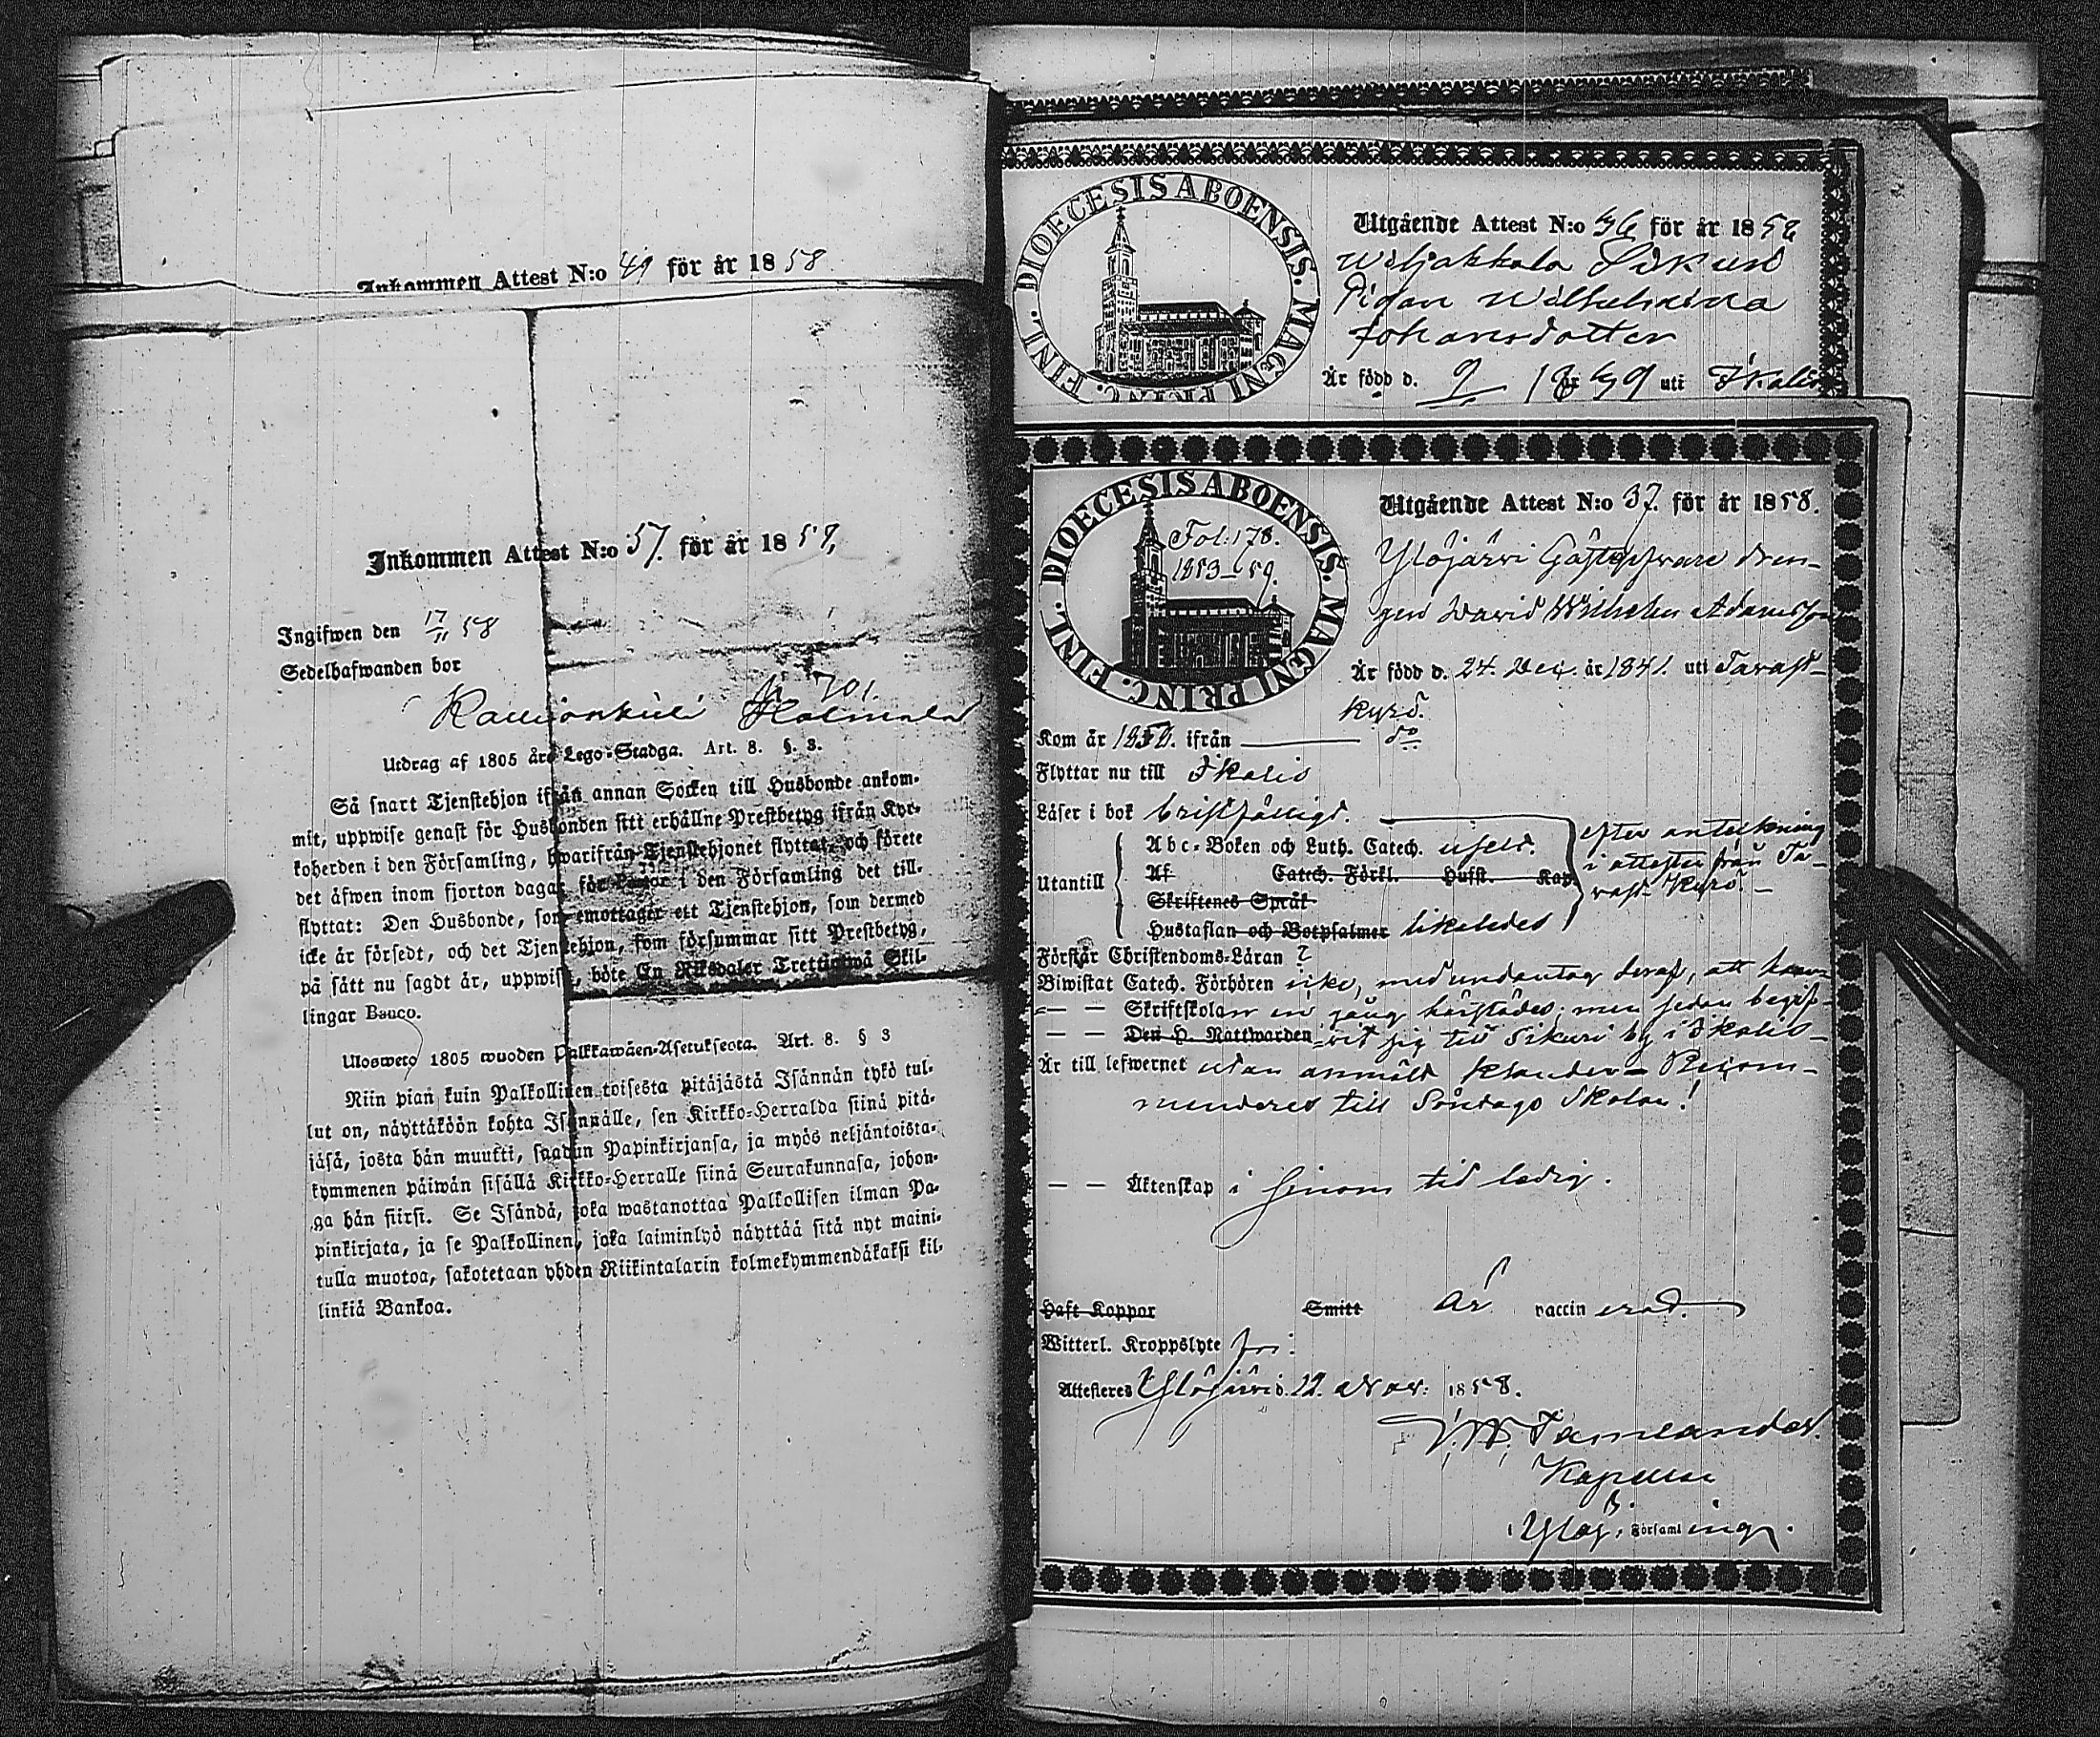 Inkommen Attest N:o 49 för år 1858
Inkommen Attest N:o 57. för år 1858,
Ingifwen den 17/11 58
Sedelhafwanden bor
N 701.
Utdrag af 1805 års Lego-Stadga. Art. 8. §. 3.
Så snart Tjenstehjon ifrån annan Socken till Husbonde ankom-
mit, uppwise genast för Husbonden sitt erhållne Prestbetyg ifrån Kyr-
koherden i den Församling, hwarifrån Tjenstehjonet flyttat, och förete
det äfwen inom fjorton dagar för i den Församling det till-
flyttat: Den Husbonde, som emottager ett Tjenstehjon, som dermed
icke är försedt, och det Tjenstehjon, som försummar sitt Prestbetyg,
på sätt nu sagdt är, uppwisa, böte En Riksdaler Trettiotwå Skil-
lingar Banco.
Ulosweto 1805 wuoden Palkkawäen-Asetuksesta. Art. 8. § 3
Niin pian kuin Palkollinen toisesta pitäjästä Isännän tykö tul-
lut on, näyttäköön kohta Isännälle, sen Kirkko-Herralda siinä pitä-
jäsä, josta hän muutti, saadun Papinkirjansa, ja myös neljäntoista-
kymmenen päiwän sisällä Kirkko-Herralle siinä Seurakunnasa, johon-
ga hän siirsi. Se Isändä, joka wastanottaa Palkollisen ilman Pa-
pinkirjata, ja se Palkollinen, joka laiminlyö näyttää sitä nyt maini-
tulla muotoa, sakotetaan yhden Riikintalarin kolmekymmendäkaksi kil-
linkiä Bankoa.
DIOECESIS ABOENSIS. MAGNI PRINC. FINL.
Utgående Attest N:o för år 1858
Wiljakkala
Pigan Wilhelmina
Johansdotter
Är född d. uti Ikalis
DIOECESIS ABOENSIS. MAGNI PRINC. FINL.
Fol. 178.
1853–59.
Utgående Attest N:o 37. för år 1858.
Ylöjärvi dren-
gen David Wilhelm Adamsson
Är född d. 24. år 1841. uti Tavast-
kyrö.
Kom år ifrån do
Flyttar nu till Ikalis
Läser i bok bristfälligt.
Abc-Boken och Luth. Catech.
Utantill
Af Catech. Förkl. Husft. Kap.
Skriftenes Språk
Hustaflan och Botpsalmer likaledes
efter anteckning
i attesten från Ta-
vast Kyrö.
Förstår Christendoms-Läran ?
Biwistat Catech. Förhören icke, med undantag deraf, att han
— — Skriftskolan en gång härstädes; men sedan begif-
— — Den H. Nattwarden vit sig till Sikuri by i Ikalis
Är till lefwernet utan anmäldt klander – Recom-
menderes till Söndags Skolan!
— — Äktenskap i genom tid ledig.
Haft Koppor Smitt är vaccin erad.
Witterl. Kroppslyte fri.
Attesteres Ylöjärvi d. 12. Nov. 1858.
Kapellan
i Ylöj. Församl ing.